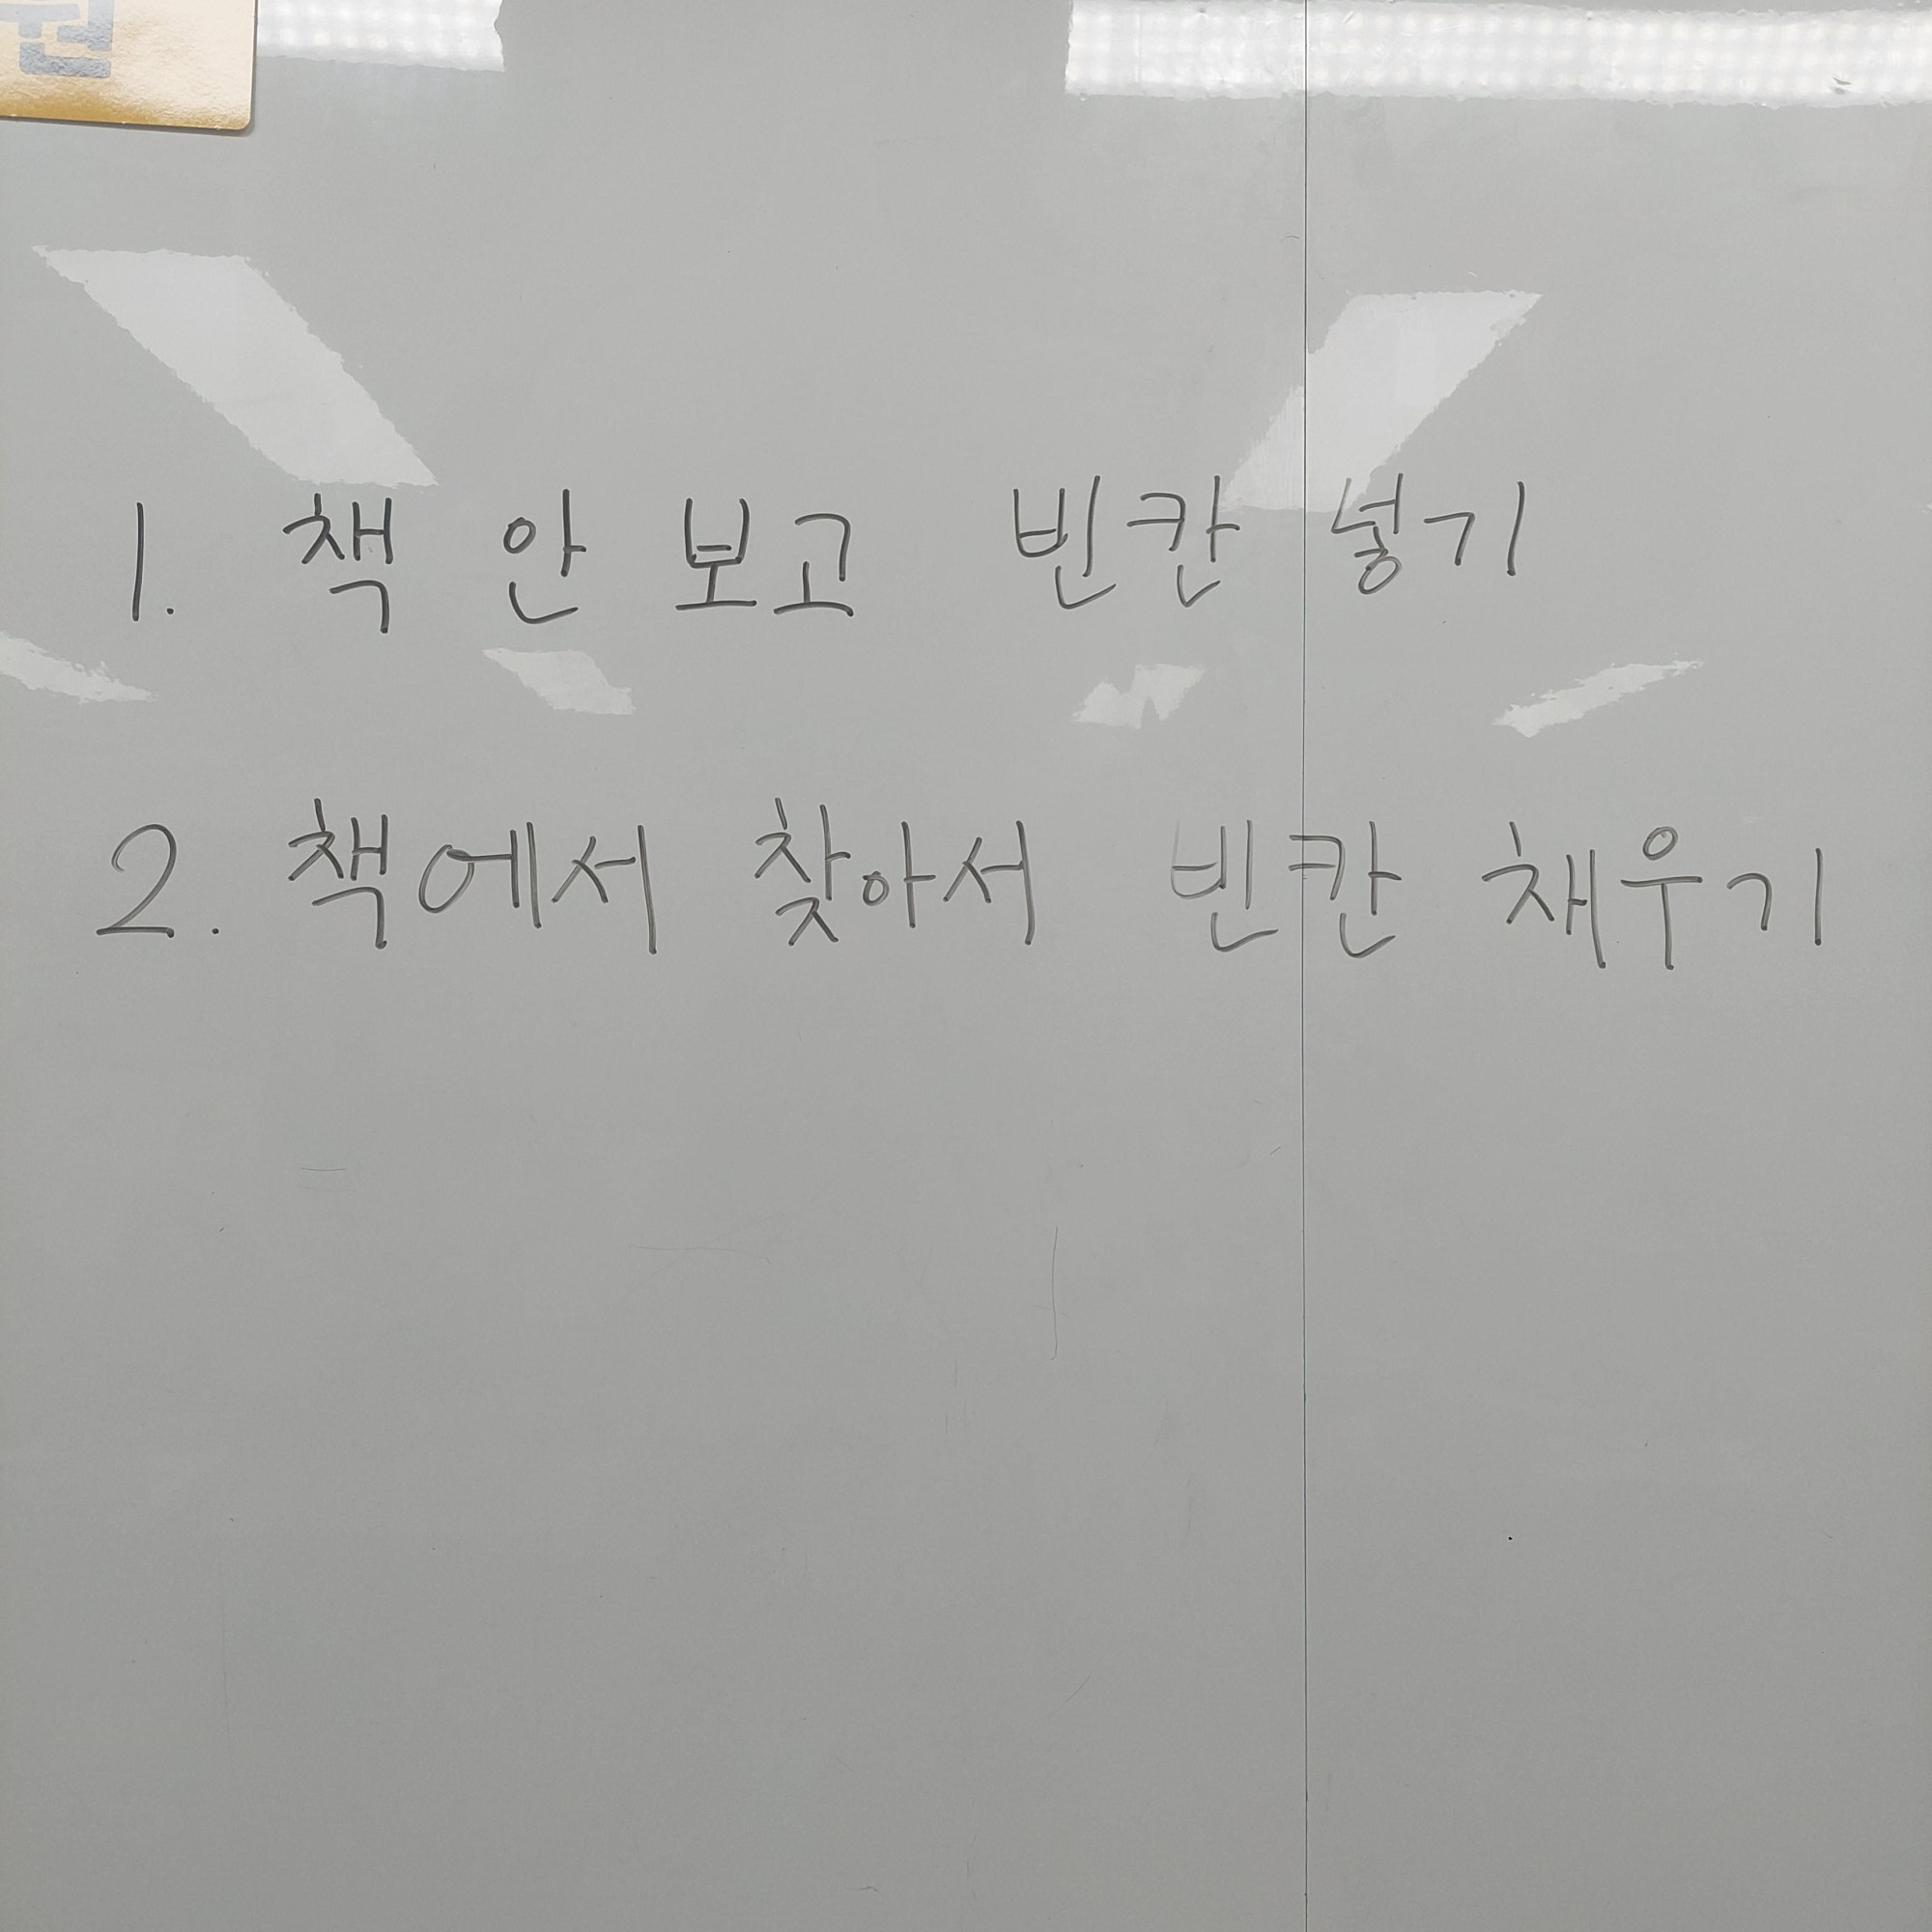 1. 책 안 보고 빈칸 넣기
2. 책에서 찾아서 빈칸 채우기